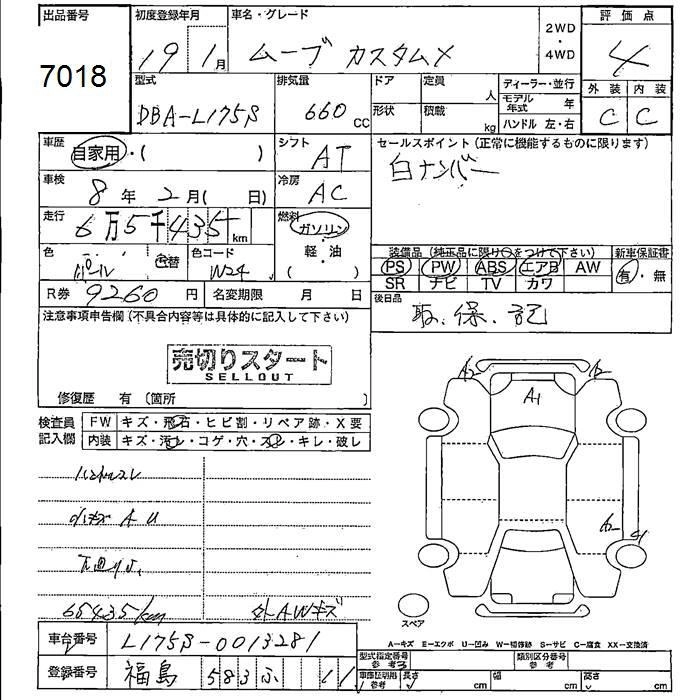 出品番号
7018
初度登録年月
19 1月
車名・グレード
ムーブ カスタムX
2WD
・
4WD
評価点
4
外装 内装
C C
型式
DBA-L175S
排気量
660 cc
ドア
定員
人
形状
積載
kg
ディーラー・並行
モデル年式 年
ハンドル 左・右
車歴
自家用・( )
シフト
AT
セールスポイント(正常に機能するものに限ります)
白ナンバー
車検
8年 2月( 日)
冷房
AC
走行
6万5千435km
燃料
ガソリン
軽・油
( )
色
パール
色替
色コード
W24
装備品(純正品に限り○をつけて下さい)
PS PW ABS エアB AW
SR ナビ TV カワ
新車保証書
有・無
R券 9260円
名変期限 月 日
後日品
取.保.記
注意事項申告欄(不具合内容等は具体的に記入して下さい)
売切りスタート
SELLOUT
修復歴 有(箇所 )
検査員記入欄
FW キズ・飛石・ヒビ割・リペア跡・X要
内装 キズ・汚レ・コゲ・穴・スレ・キレ・破レ
ハンドルスレ
A U
下回りS.
65435km
外AWキズ
A2
A2
A1
A2
スペア
A-キズ E-エクボ U-凹み W-補修跡 S-サビ C-腐食 XX-交換済
車台番号
L175S-0013281
登録番号
福島 583 ふ 11
型式指定番号
参考
類別区分番号
参考
車庫証明用
参考
長さ
cm
幅
cm
高さ
cm